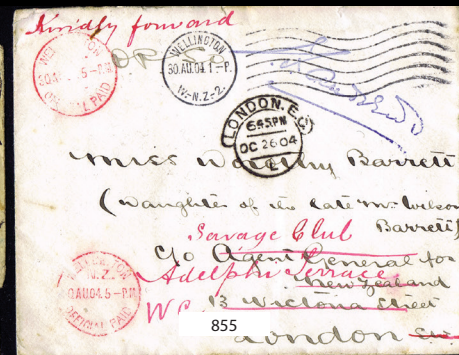 Kindly forward
WELLINGTON
30 AU 04 5-PM
OFFICIAL PAID
WELLINGTON
30.AU.04 1-P.
W.-N.Z-2.
LONDON. E.C.
6.45.PM
OC 26 04
Miss Dorothy Barrett
(Daughter of the late Mr. Wilson
Barrett)
Savage Club
c/o Agent General for
Adelphi Terrace
New Zealand
WC 13 Victoria Street
London SW
WELLINGTON
N.Z.
30 AU 04 5-PM
OFFICIAL PAID
855